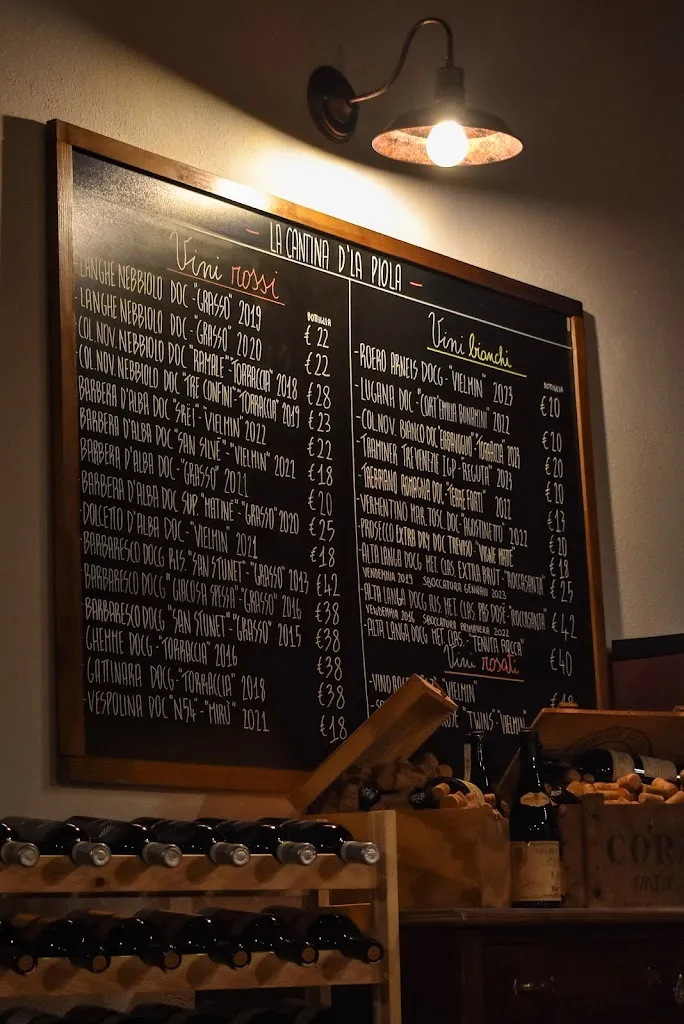 - LA CANTINA D'LA PIOLA -
Vini rossi
BOTTIGLIA
-LANGHE NEBBIOLO DOC - "GRASSO" 2019 € 22
-LANGHE NEBBIOLO DOC - "GRASSO" 2020 € 22
-COL.NOV. NEBBIOLO DOC "RAMALE" - "TORRACCIA" 2018 € 28
-COL.NOV. NEBBIOLO DOC "TRE CONFINI" - "TORRACCIA" 2019 € 23
-BARBERA D'ALBA DOC "SRËI" - "VIELMIN" 2022 € 22
-BARBERA D'ALBA DOC "SAN SILVË" - "VIELMIN" 2022 € 18
-BARBERA D'ALBA DOC - "GRASSO" 2021 € 20
-BARBERA D'ALBA DOC SUP "MATINÉ" - "GRASSO" 2020 € 25
-DOLCETTO D'ALBA DOC - "VIELMIN" 2021 € 18
-BARBARESCO DOCG RIS. "SAN STUNET" - "GRASSO" 2013 € 42
-BARBARESCO DOCG "GIACOSA FISSA" - "GRASSO" 2016 € 38
-BARBARESCO DOCG "SAN STUNET" - "GRASSO" 2015 € 38
-GHEMME DOCG - "TORRACCIA" 2016 € 38
-GATTINARA DOCG - "TORRACCIA" 2018 € 38
-VESPOLINA DOC "N54" - "MIRÙ" 2021 € 18
Vini bianchi
BOTTIGLIA
-ROERO ARNEIS DOCG - "VIELMIN" 2023 € 20
-LUGANA DOC - "CONT' EMILIA BONAMINI" 2022 € 20
-COL.NOV. BIANCO DOC - "TORRACCIA" 2023 € 20
-TRAMINER TREVENEZIE IGP - "REGUTA" 2023 € 20
-TREBBIANO ROMAGNA DOC - "TERRE FORTI" 2022 € 13
-VERMENTINO MAR. TOSC. DOC - "AGOSTINETTO" 2022 € 20
-PROSECCO EXTRA DRY DOC TREVISO - "VIGNE MATTE" € 18
-ALTA LANGA DOCG MET. CLAS. EXTRA BRUT - "ROCCASANTA" € 25
VENDEMMIA 2019 SBOCCATURA GENNAIO 2023
-ALTA LANGA DOCG RIS. MET. CLAS. PAS DOSÉ - "ROCCASANTA" € 42
VENDEMMIA 2016 SBOCCATURA PRIMAVERA 2022
-ALTA LANGA DOCG MET. CLAS. "TENUTA ROCCA" € 40
Vini rosati
-VINO "VIELMIN"
"TWINS" - "VIELMIN"
COR